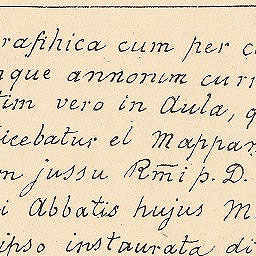 rafihica cum per c
que annonum curr
tim vero in Aula, q
icebatur et Mappam
n jussu Rm̃i p. D.
i Abbatis hujus M
ipso instaurata di